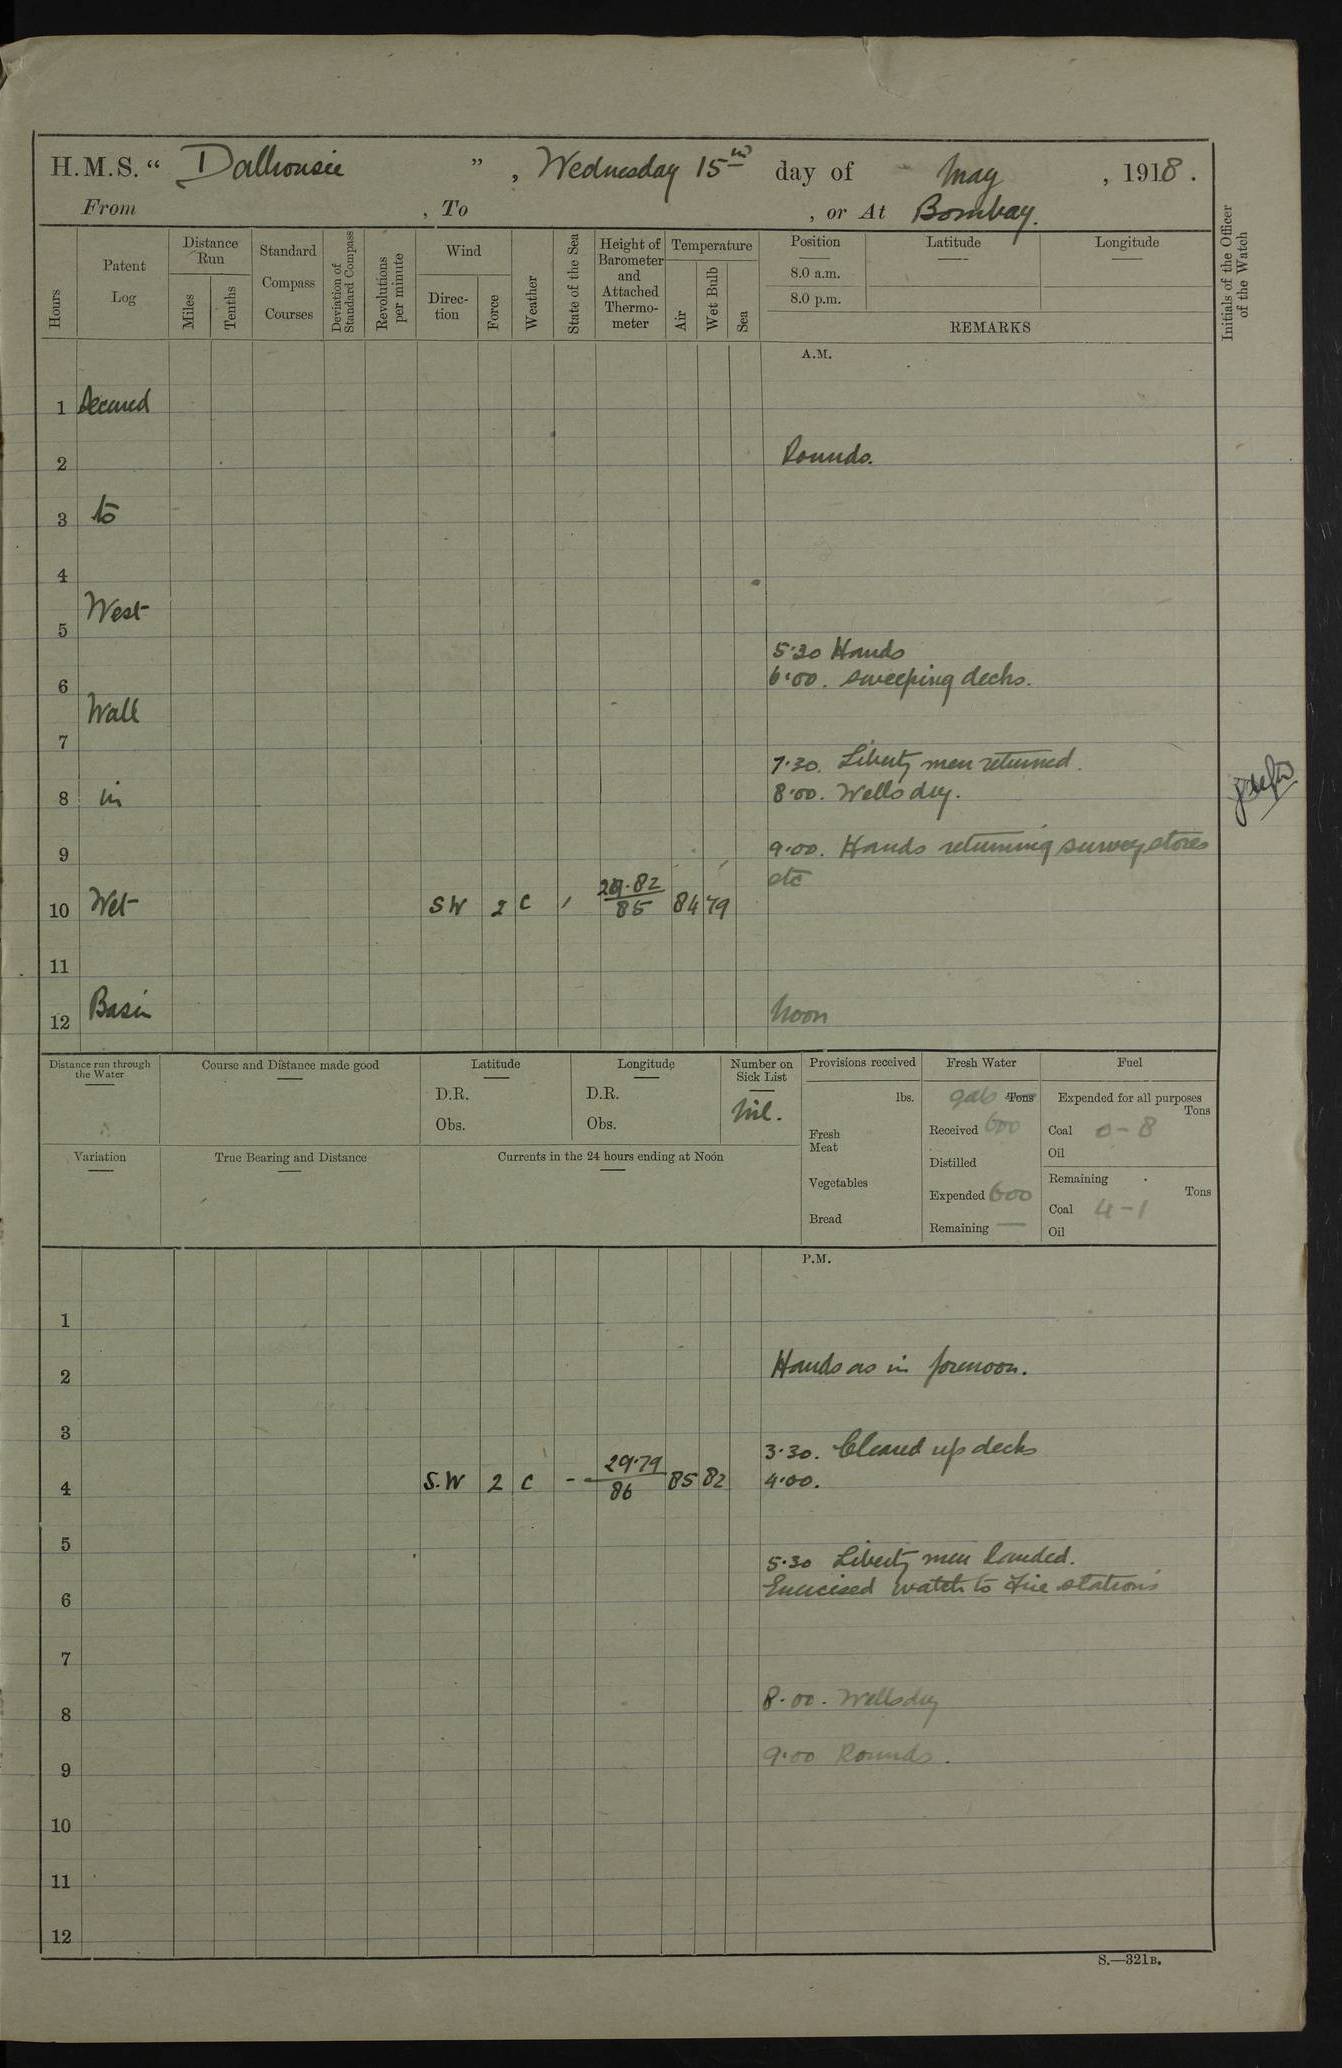 H.M.S. “ Dalhousie ” , Wednesday 15th day of May , 1918 .
From , To , or At Bombay.
Hours
Patent Log
Distance Run
Miles
Tenths
Standard Compass Courses
Deviation of Standard Compass
Revolutions per minute
Wind
Direction
Force
Weather
State of the Sea
Height of Barometer and Attached Thermometer
Temperature
Air
Wet Bulb
Sea
Position
8.0 a.m.
8.0 p.m.
Latitude
Longitude
REMARKS
Initials of the Officer of the Watch
A.M.
1 Secured
2 Rounds.
3 to
4
West
5
5·30 Hands
6·00. sweeping decks.
6
Wall
7
7·30. Liberty men returned.
8 in 8·00. Wells dry.
9 9·00. Hands returning survey stores
etc
10 Wet SW 2 c 29·82 / 85 84 79
11
Basin
12 Noon
Distance run through the Water
Course and Distance made good
Latitude
D.R.
Obs.
Longitude
D.R.
Obs.
Number on Sick List
Nil.
Provisions received
lbs.
Fresh Meat
Vegetables
Bread
Fresh Water
gals Tons
Received 600
Distilled
Expended 600
Remaining —
Fuel
Expended for all purposes
Tons
Coal 0-8
Oil
Remaining
Tons
Coal 4-1
Oil
Variation
True Bearing and Distance
Currents in the 24 hours ending at Noon
P.M.
1
2 Hands as in forenoon.
3
3·30. Cleared up decks
4 S.W 2 c - 29·79 / 86 85 82 4·00.
5
5·30 Liberty men landed.
6 Exercised watch to Fire stations
7
8 8·00. Wells dry
9 9·00 Rounds.
10
11
12
S.—321B.